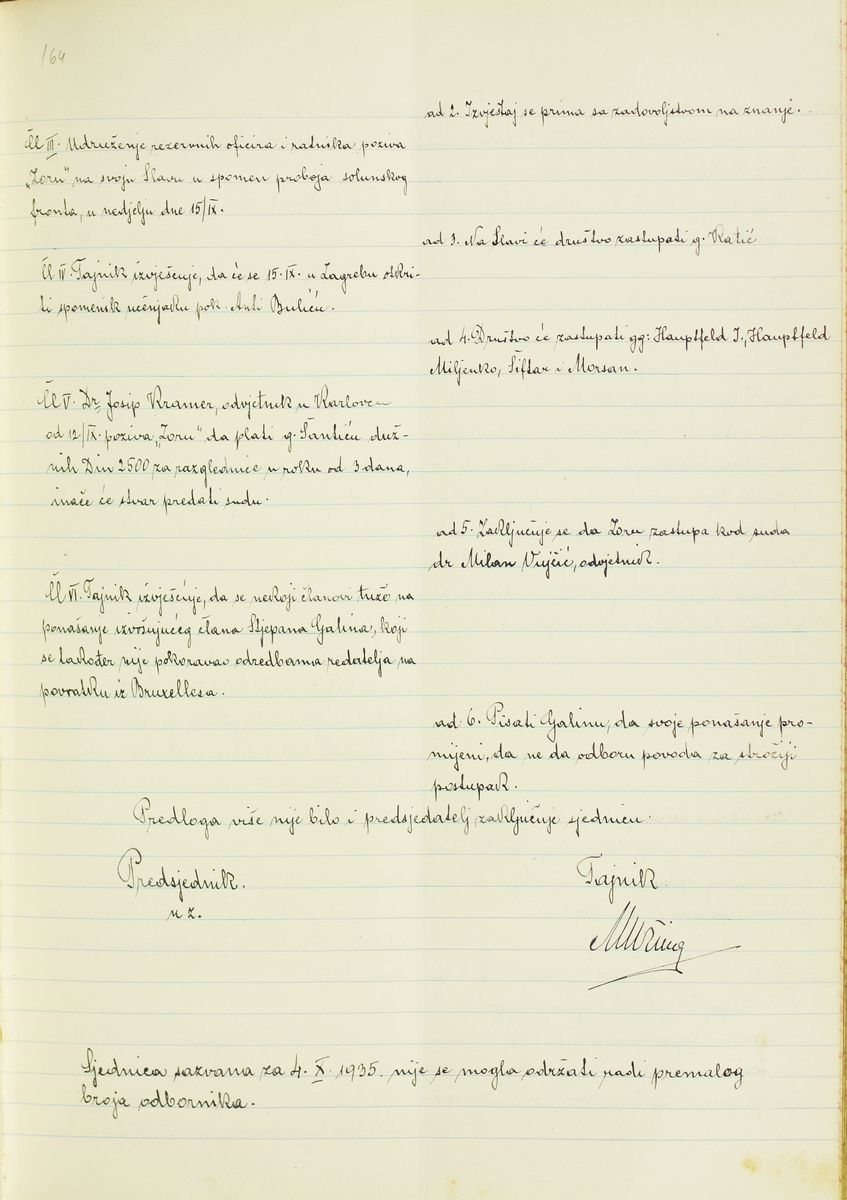 164
ad 2. Izvještaj se prima sa zadovoljstvom na znanje.
Čl III. Udruženje rezervnih oficira i ratnika poziva
„Zoru" na svoju Slavu u spomen proboja solunskog
fronta, u nedjelju dne 15/IX.
ad 3. Na Slavi će društvo zastupati g. Katić
Čl IV. Tajnik izvješćuje, da će se 15. IX. u Zagrebu otkri-
ti spomenik učenjaku pok. Anti Buliću.
ad 4. Društvo će zastupati gg: Hauptfeld I., Hauptfeld
Miljenko, Šiftar i Morsan.
Čl V. Dr. Josip Kramer, odvjetnik u Karlovcu
od 12/IX. poziva „Zoru" da plati g. Šantiću duž-
nih Din 2500 za razglednice u roku od 3 dana,
inače će stvar predati sudu.
ad 5. Zaključuje se da Zoru zastupa kod suda
dr Milan Vujčić, odvjetnik.
Čl VI. Tajnik izvješćuje, da se nekoji članovi tuže na
ponašanje izvršujućeg člana Stjepana Galina, koji
se također nije pokoravao odredbama redatelja na
povratku iz Bruxellesa.
ad 6. Pisati Galinu, da svoje ponašanje pro-
mijeni, da ne da odboru povoda za strožiji
postupak.
Predloga više nije bilo i predsjedatelj zaključuje sjednicu.
Predsjednik.
u z.
Tajnik
Sjednica sazvana za 4. X. 1935. nije se mogla održati radi premalog
broja odbornika.